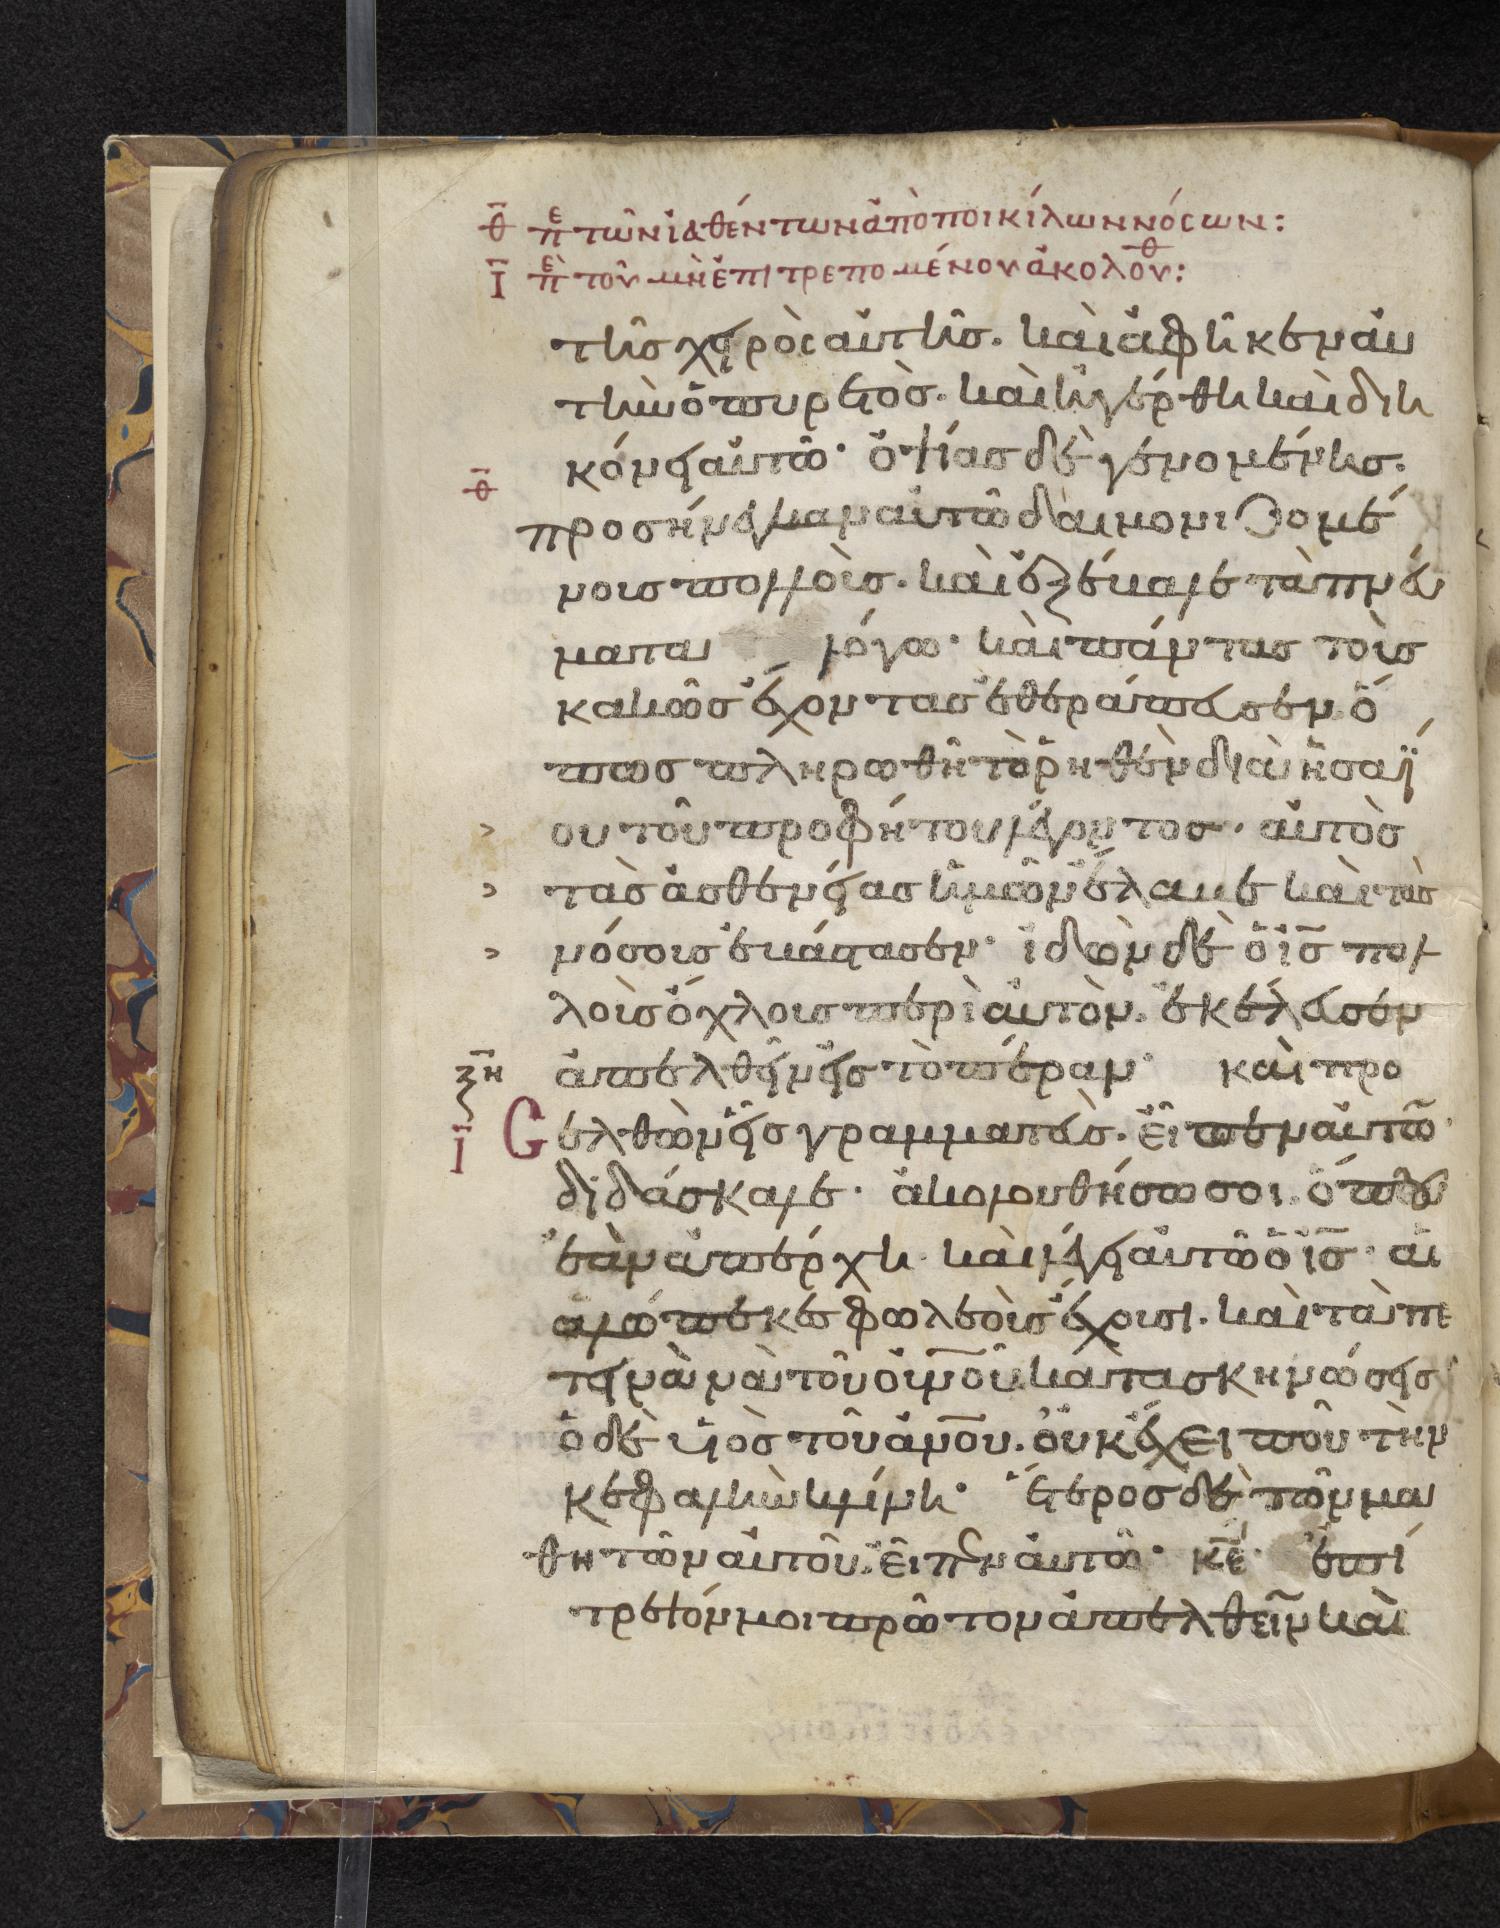 θ̄ πε τῶν ἰαθέντων ἀπὸ ποικίλων νόσων:
ῑ πὲ τοῦ μὴ ἐπιτρεπομένου ἀκολοθυ:
τῆς χειρὸς αὐτῆς. καὶ ἀφῆκεν αὐ
τὴν ὁ πυρετὸς. καὶ ἠγέρθη καὶ διη
κόνει αὐτῶ· ὀψίας δὲ γενομένης.
θ̄
προσήνεγκαν αὐτῶ δαιμονιζομέ
νους πολλοὺς. καὶ ἐξέβαλε τὰ πνεύ
ματα λόγω· καὶ πάντας τοὺς
κακῶς ἔχοντας ἐθεράπευσεν ὅ
πως πληρωθῆ τὸ ῥηθὲν διὰ ἡσαΐ
> ου τοῦ προφήτου λέγοντος· αὐτὸς
> τὰς ἀσθενείας ἡμῶν ἔλαβε καὶ τὰς
> νόσους ἐβάστασεν· ἰδὼν δὲ ὁ ἰ̄σ̄ πολ
λοὺς ὄχλους περὶ αὐτὸν. ἐκέλευσεν
ξη ἀπελθεῖν εἰς τὸ πέραν· καὶ προ
ῑ Ϲελθὼν εἷς γραμματεὺς. εἶπεν αὐτῶ·
διδάσκαλε· ἀκολουθήσω σοι ὅπου
ἐὰν ἀπέρχη· καὶ λέγει αὐτῶ ὁ ἰ̄σ̄· αἱ
ἀλώπεκες φωλεοὺς ἔχουσι. καὶ τὰ πε
τεινὰ τοῦ οὐ̄νοῦ κατασκηνώσεις
ὁ δὲ υἱὸς τοῦ ἀν̄ο̄υ. οὐκ ἔχει ποῦ τὴν
κεφαλὴν κλίνη· ἕτερος δὲ τῶν μα
θητῶν αὐτοῦ. εἶπεν αὐτῶ· κ̄ε̄· ἐπί
τρεψόν μοι πρῶτον ἀπελθεῖν καὶ